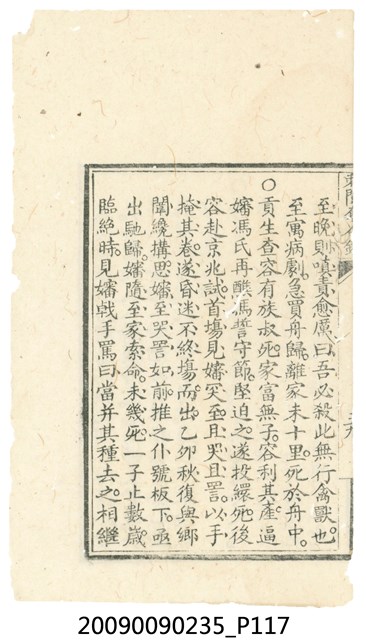 至晚則嗔責愈厲曰吾必殺此無行禽獸也
至寓病劇急買舟歸離家未十里死於舟中
○貢生查容有族叔死家富無子容利其產逼
孀馮氏再醮馮誓守節堅迫之遂投繯死後
容赴京兆試首場見孀突至且哭且詈以手
掩其卷遂昏迷不終場而出乙卯秋復與鄉
闈纔搆思孀至哭詈如前推之仆號板下亟
出馳歸孀隨至家索命未幾死一子止數歲
臨絕時見孀戟手罵曰當并其種去之相繼
20090090235_P117